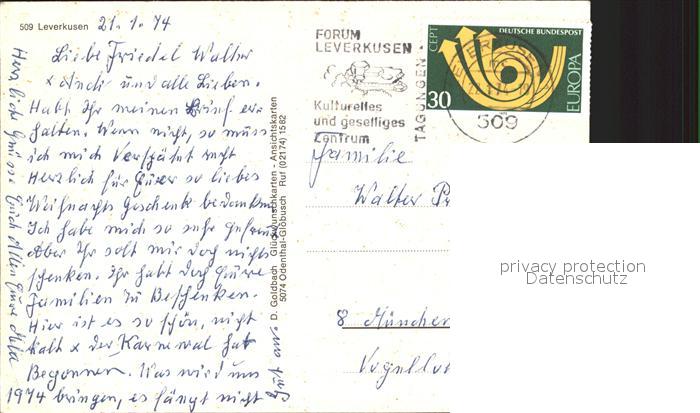 509 Leverkusen
21.1.74
Liebe Friedel Walter
x Andi und alle Lieben.
Habt Ihr meinen Brief er-
halten. Wenn nicht, so muss
ich mich Verspätet recht
Herzlich für Eurer so liebes
Weihnachts Geschenk bedanken
Ich habe mich so sehr gefreut
Aber Ihr solt mir doch nichts
schenken. Ihr habt doch Eure
Familien zu Beschenken.
Hier ist es so schön, nicht
kalt x der Karnewal hat
Begonnen. Was wird uns
1974 bringen, es fängt nicht
gut an.
Herzliche Grüsse Euch Allen Eure
D. Goldbach Glückwunschkarten - Ansichtskarten
5074 Odenthal-Glöbusch Ruf (02174) 1582
FORUM
LEVERKUSEN
Kulturelles
und geselliges
Zentrum
TAGUNGEN
CEPT
DEUTSCHE BUNDESPOST
EUROPA
30
509
Familie
Walter
8 München
privacy protection
Datenschutz